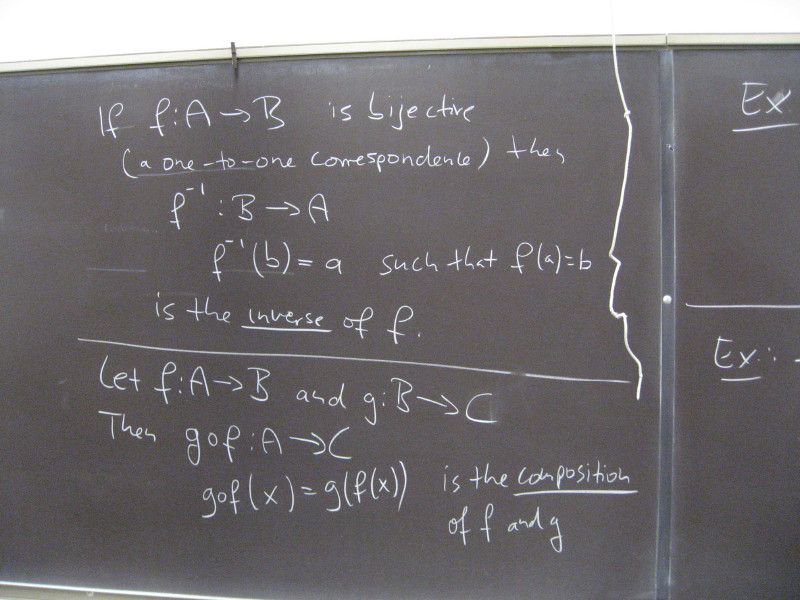 If f: A → B is bijective
(a one-to-one correspondence) then
f⁻¹ : B → A
f⁻¹(b) = a such that f(a) = b
is the inverse of f.
Let f: A → B and g: B → C
Then gof : A → C
gof(x) = g(f(x)) is the composition
of f and g
Ex
Ex: